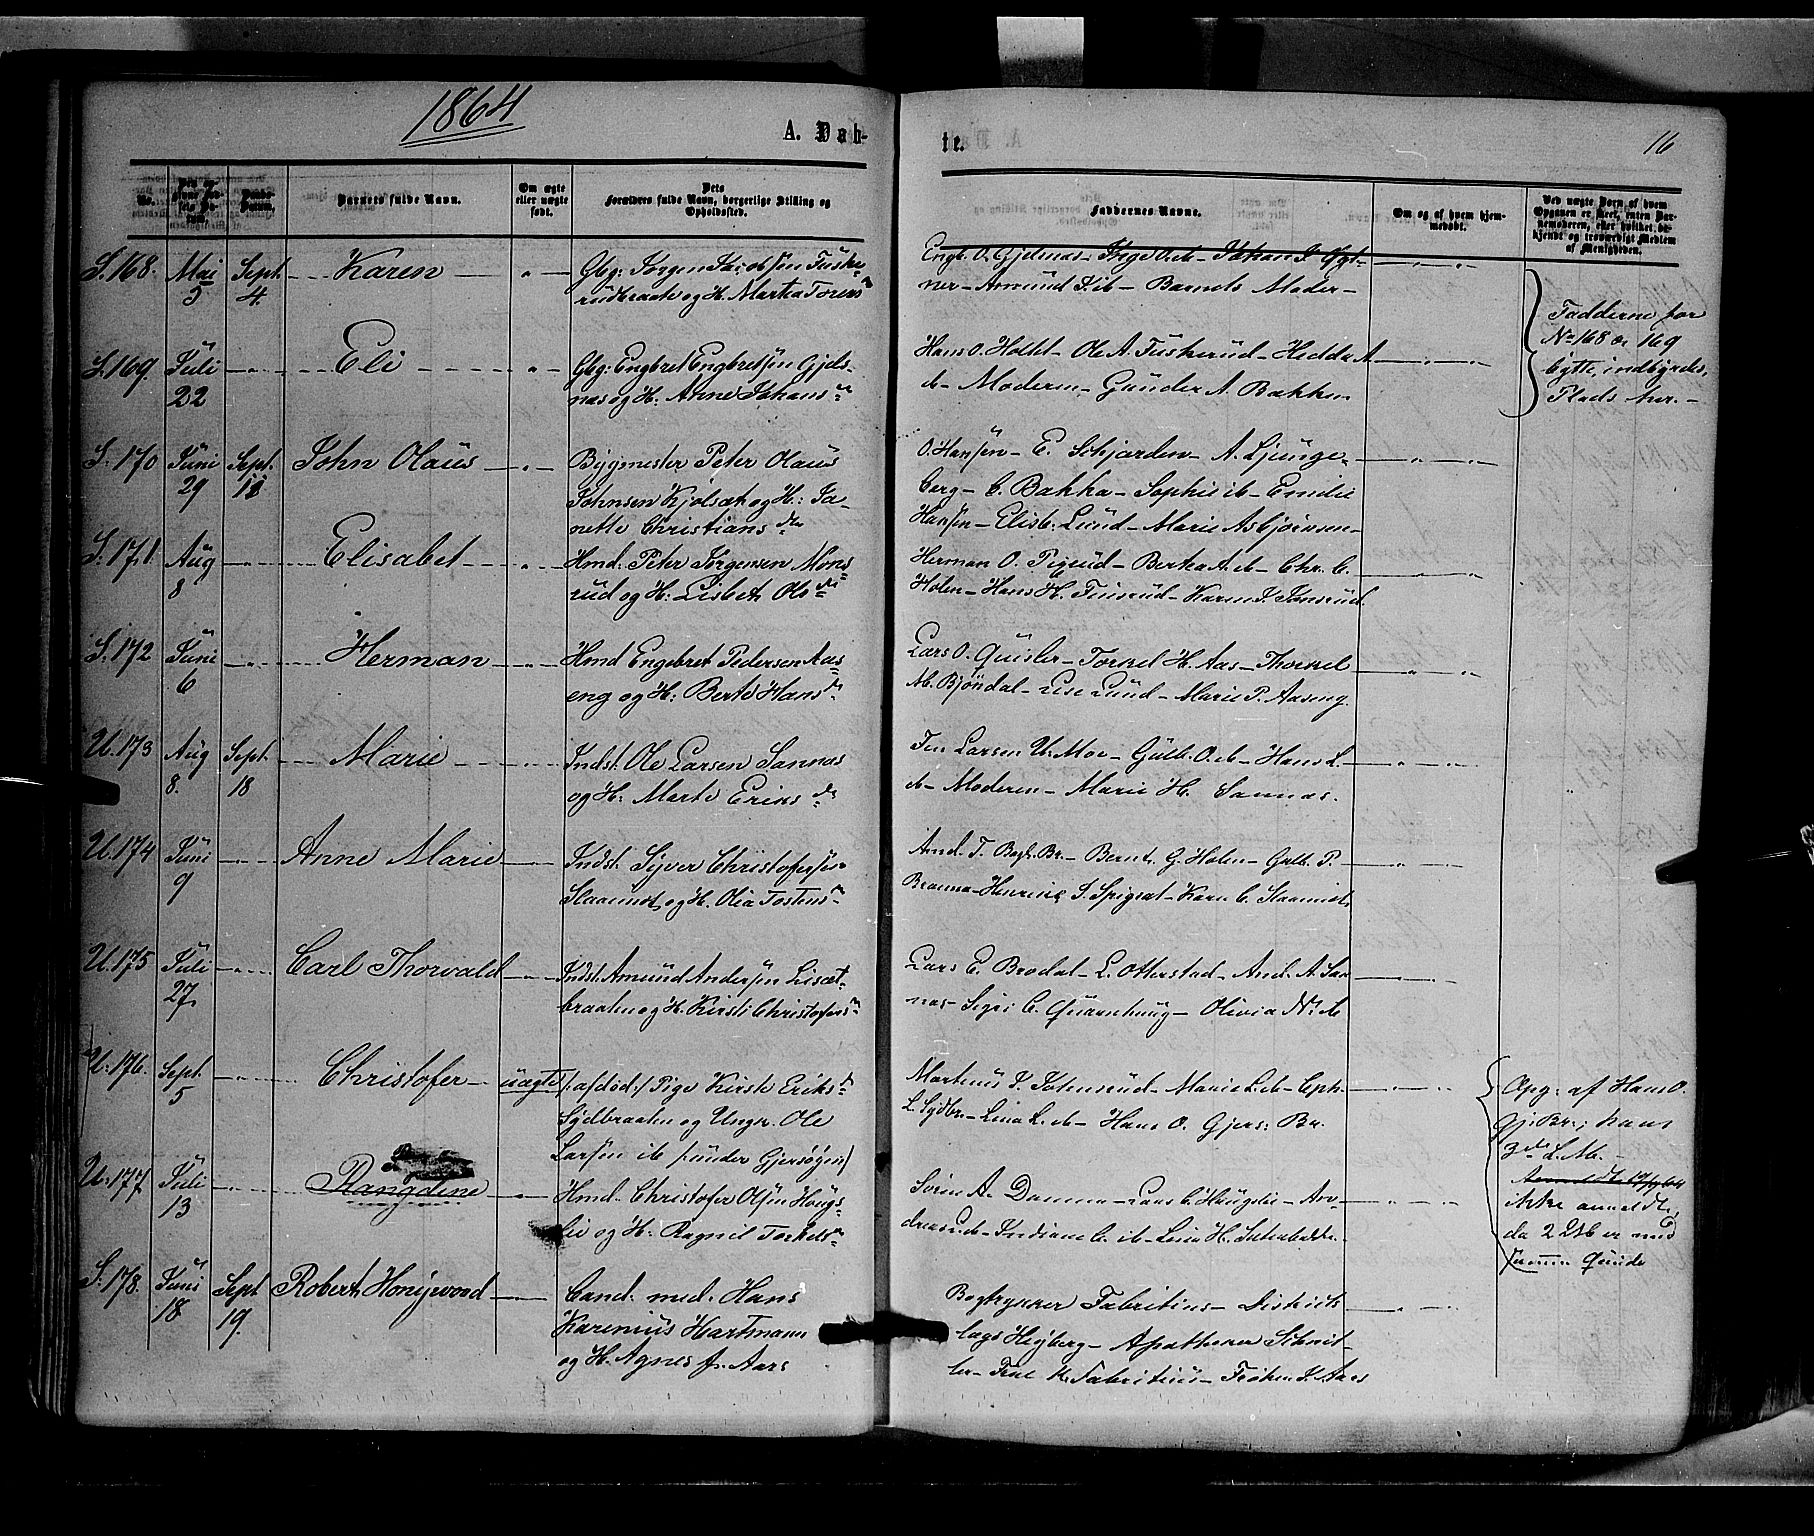 1864
A. Dåb-
te.
16
No.
Barnets fulde Navn.
Om ægte
eller uægte
født.
Dets
Forældres fulde Navn, borgerlige Stilling og
Opholdssted.
Faddernes Navne.
Om og af hvem hjem-
medøbt.
Ved uægte Børn af hvem
Opgaven er skeet, enten Bar-
nemoderen, eller hvilket be-
kjendt og troværdigt Medlem
af Menigheden.
S. 168. Mai 5 Sept. 4 Karen
Gbg: Jørgen Jacobsen Fuske-
rudbraate og H. Martea Torersdtr
Engb. O. Gjelnas - Inge O. ib - Johan S.
ner - Amund S. ib - Barnets Moder -
Fadderne for
No 168 og 169
bytte indbyrdes
Plads her. -
S. 169. Juli 22 Eli
Gbg: Engbret Engbretsen Gjels-
nas og H: Anne Johansdtr
Hans O. Holtet - Ole A. Fuskerud - Hedda A.
ib - Moderen - Gunder A. Bakken
S. 170 Juni 29 Sept. 11 John Olaus
Bygmester Peter Olaus
Johnsen Kjølsæt og H: Ja-
nette Christiansdtr
O. Hansen - E. Schjarden - A. Ljunge-
berg - C. Bakka - Sophie ib - Emilie
Hansen - Elisb. Lund - Marie Asbjørnsen -
S. 171 Aug 8 Elisabet
Hmd: Peter Jørgensen Mons-
rud og H: Lisbet Olsdtr
Herman O. Pigrud - Berta A. ib - Chr. C.
Holen - Hans H. Finsrud - Karen J. Jonsrud
S. 172 Juni 6 Herman
Hmd Engebret Pedersen Aas-
eng og H: Berte Hansdtr
Lars O. Quisler - Torkel H. Aas - Thorkel
M. Bjøndal - Lise Lund - Marie P. Aaseng.
U. 173 Aug 8. Sept. 18 Marie
Indst. Ole Larsen Sannas
og H: Marte Eriksdtr
Jens Larsen U. Moe - Gulb. O. ib - Hans L.
ib - Moderen - Marie H. Sannas.
U. 174 Juni 9 Anne Marie
Indst. Syver Christofersen
Slaamot og H. Olia Tostensdtr
And. T. Bagl. Br. - Bernt G. Holen - Gulb. P.
Branna - Henrine S. Spigsat - Karen C. Slaamot
U. 175 Juli 27 Carl Thorvald
Indst. Amund Andersen Lisæt-
braaten og H. Kirsti Christofersdtr
Lars E. Brodal - L. Otterstad - And. A. San-
nas - Sigri C. Quarnhaug - Olivia N. ib
U. 176. Sept. 5 Christofer uægte
/: afdød :/ Pige Kirste Eriksdtr
Sydbraaten og Ungk. Ole
Larsen ib /: under Gjersøgen :/
Martinus J. Jotenrud - Marie L. ib - Eph.
L. Sydbr. - Lina L. ib - Hans O. Gjers: Br.
Opg: af Hans O.
Gj: Br:, hans
3die L. M. -
ikke anmeldte,
da 2 Lib er med
samme Qvinde
U. 177. Juli 13 Rangdine
Hmd. Christofer Olsen Houg-
lie og H: Ragnil Torkelsdtr
Søren A. Damma - Lars C. Hauglie - An-
dreas L. ib - Indiane C. ib - Lina H.
S. 178. Juni 18 Sept 19. Robert Honywood
Cand. med. Hans
Karenius Hartmann
og H. Agnes f. Aars
Bogtrykker Fabritius - Districts
læge Heyberg - Apotheker Schnit-
ler - Frue M. Fabritius - Frøken J. Aars